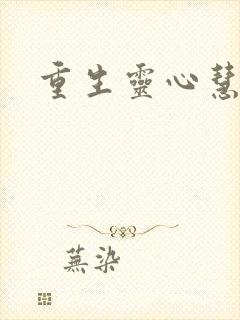 重生靈心慧
蕪染